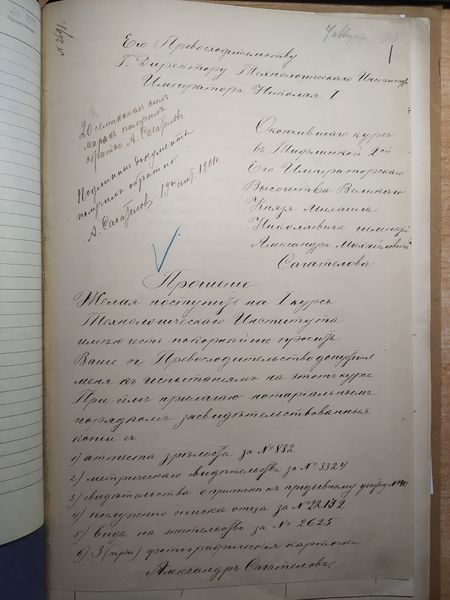 № 2691.
1
Его Превосходительству
Г. Директору Технологическаго Института
Императора Николая I
20 семикопеечных
марок получил
обратно А. Сагателов
Подлинные документы
получил обратно
А. Сагателов 19 сент. 1901.
Окончившаго курсъ
въ Тифлисской 2ой
Его Императорскаго
Высочества Великаго
Князя Михаила
Николаевича гимназiи
Александра Михайловича
Сагателова
Прошенiе
Желая поступить на I курсъ
Технологическаго Института
имѣю честь покорнѣйше просить
Ваше Превосходительство допустить
меня къ испытанiямъ на этотъ курсъ
При семъ прилагаю нотарiальнымъ
порядкомъ засвидѣтельствованныя
копiи съ:
1) аттестата зрѣлости за № 882
2) метрическаго свидѣтельства за № 3324
3) свидѣтельства о припискѣ къ призывному участку № 40
4) послужного списка отца за № 22172
5) вида на жительство за № 2625
6) 3 (три) фотографическiя карточки
Александръ Сагателовъ